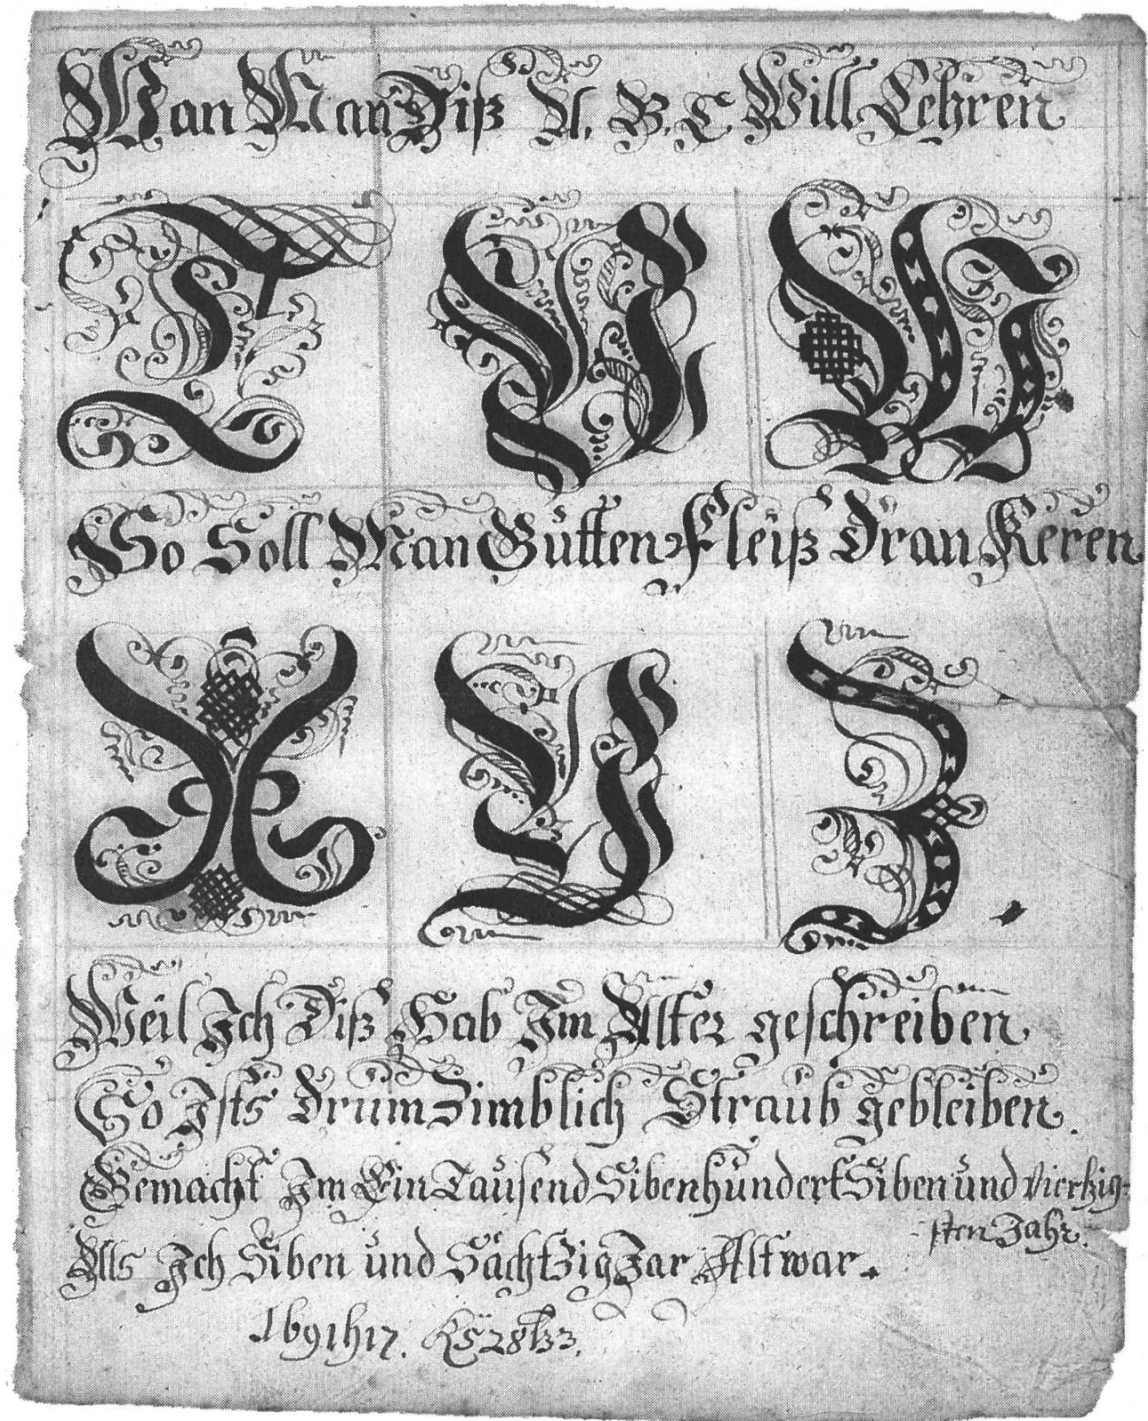 Wan Man Diß A. B. C Will Lehren
T V W
So Soll Man Gutten Fleiß Dran Keren
X Y Z
Weil Ich Diß Hab Im Alter geschreiben
So Ists Drum Zimblich Straub gebleiben.
Gemacht Im Ein Tausend Sibenhundert Siben und Vierzig=
sten Jahr.
Als Ich Siben und Sächtzig Jar Alt war.